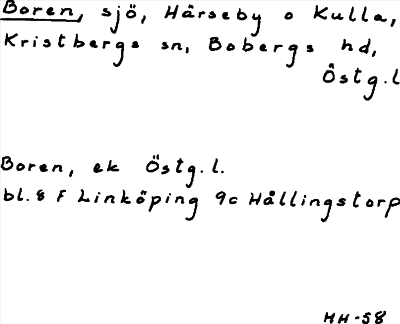 Boren, sjö, Hårseby o Kulla,
Kristbergs sn, Bobergs hd,
Östg.l
Boren, ek Östg.l.
bl. 8 F Linköping 9c Hållingstorp
HH-58